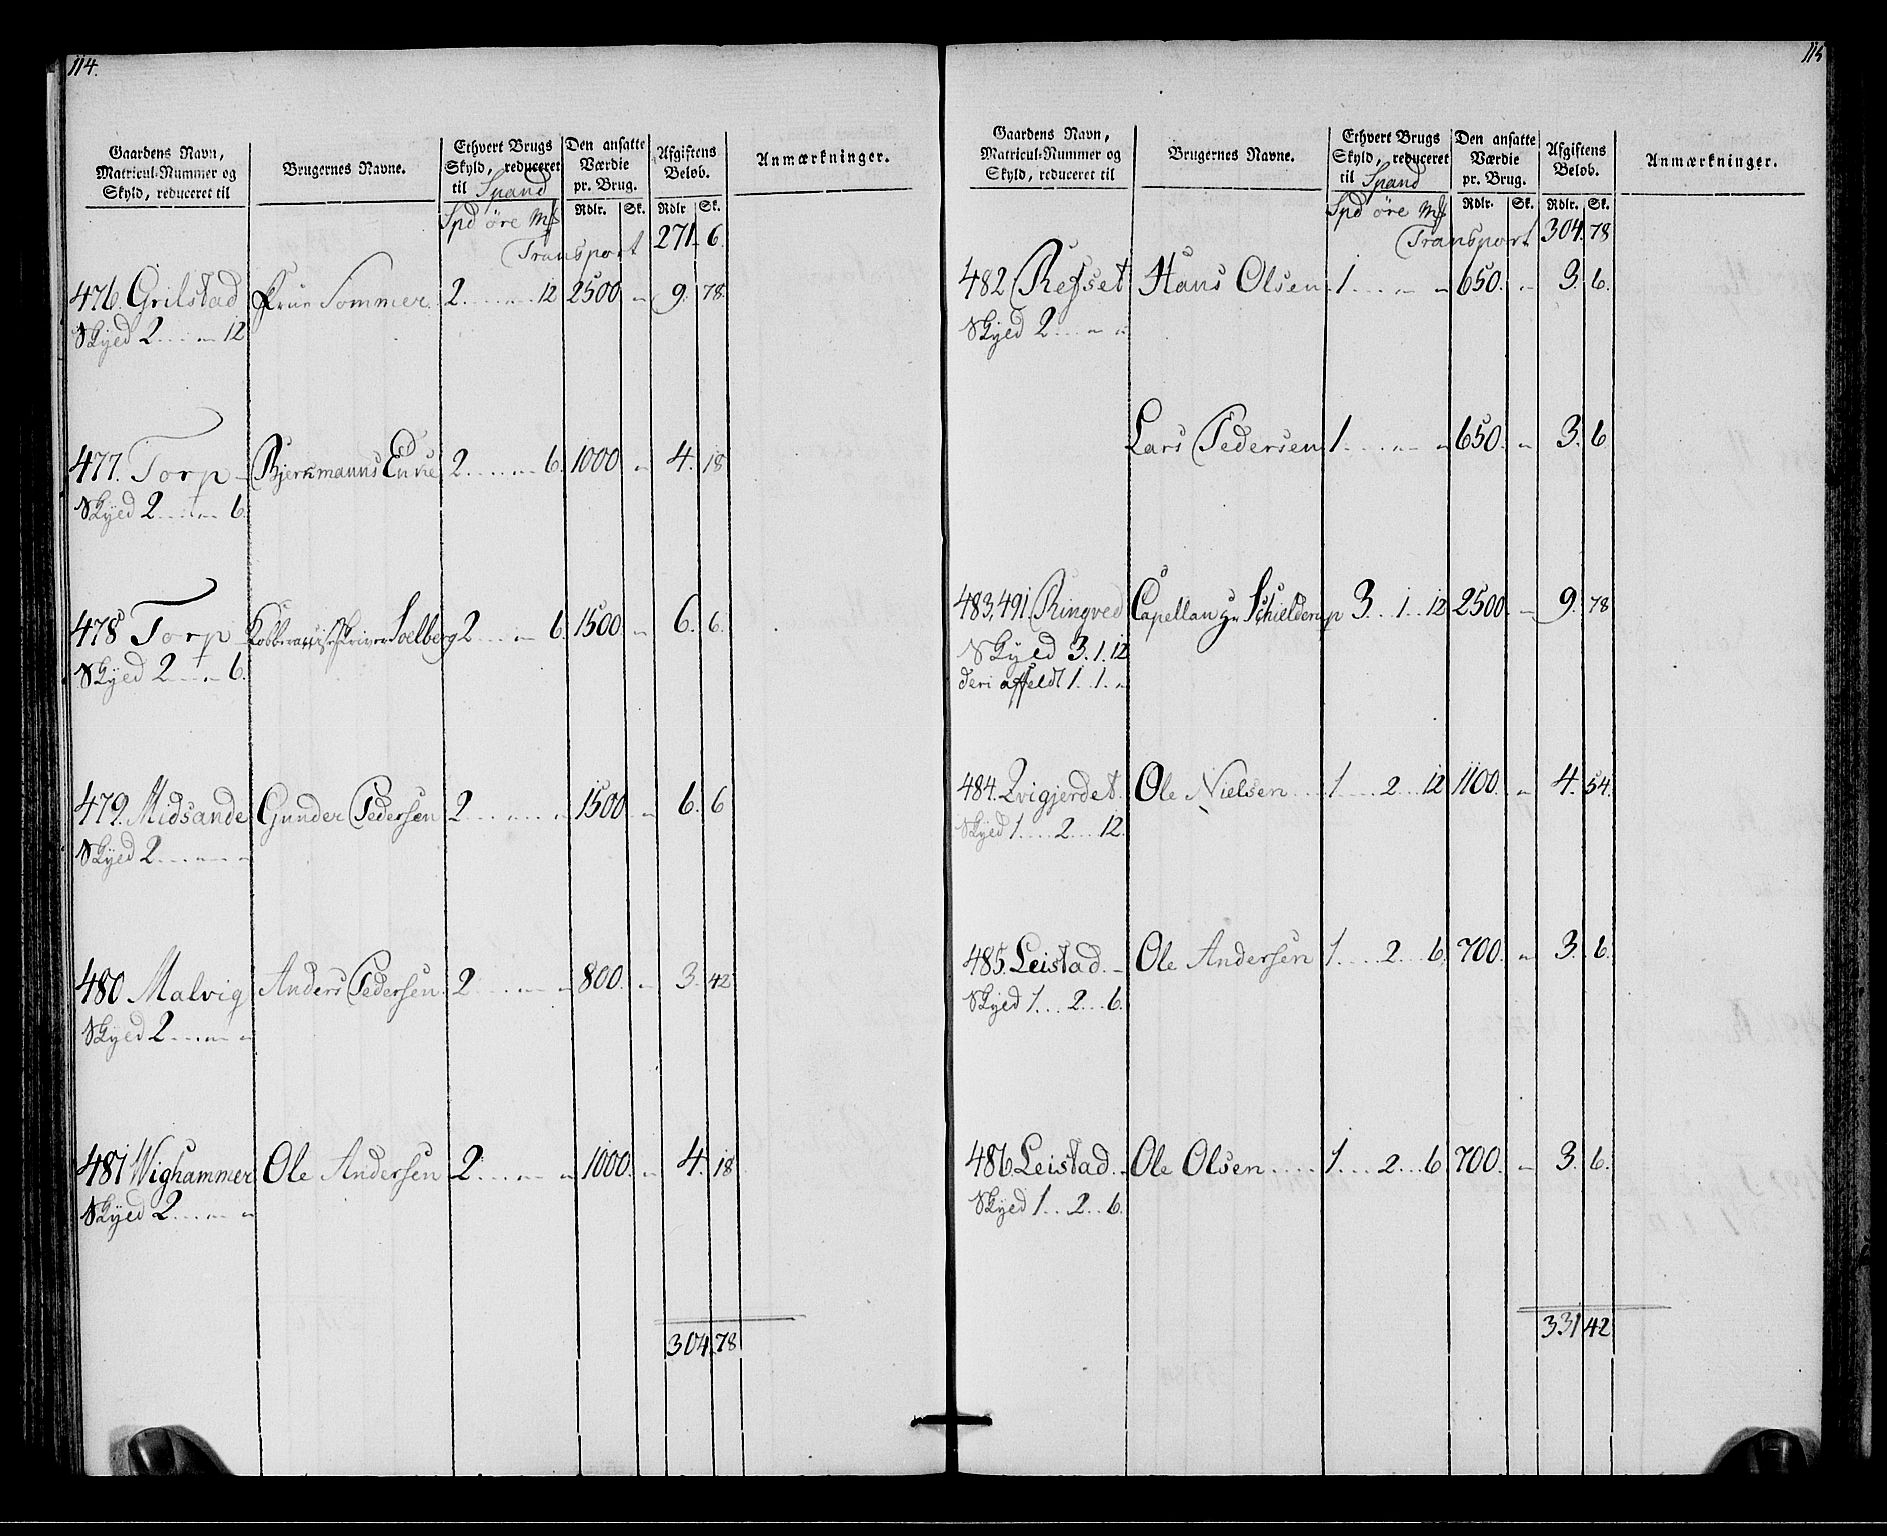 114.
Gaardens Navn, Matricul-Nummer og Skyld, reduceret til
Brugernes Navne.
Ethvert Brugs Skyld, reduceret til Spand
Den ansatte Værdie pr. Brug.
Afgiftens Beløb.
Anmærkninger.
Rdlr. Sk. Rdlr. Sk.
Spd øre Mk
Transport 271. 6.
476. Grilstad Frue Sommer. 2 . . . „ . . 12 2500 „ 9. 78.
Skyed 2 . . . „ 12
477. Torp Bjerkmanns Enke 2 . . . „ 6. 1000 „ 4. 18
Skyed 2 . . . „ 6.
478 Torp Kobberværksskriver Soelberg 2 . . . „ 6. 1500. „ 6. 6.
Skyed 2 . . . „ 6.
479. Midsande Gunder Pedersen 2 . . . „ . . „ 1500 „ 6. 6
Skyed 2 . . . „ . . „
480 Malvig Anders Pedersen 2 . . . „ . . „ 800. „ 3. 42
Skyed 2 . . . „ . . „
481 Wighammer Ole Andersen 2 . . . „ . . „ 1000. „ 4. 18
Skyed 2 . . . „ . . „
304. 78
115
Gaardens Navn, Matricul-Nummer og Skyld, reduceret til
Brugernes Navne.
Ethvert Brugs Skyld, reduceret til Spand
Den ansatte Værdie pr. Brug.
Afgiftens Beløb.
Anmærkninger.
Rdlr. Sk. Rdlr. Sk.
Spd øre Mk
Transport 304. 78
482 Refset Hans Olsen 1 . . . „ . . „ 650. „ 3. 6.
Skyed 2 . . . „ . . „
Lars Pedersen 1 . . . „ . . „ 650. „ 3. 6
483, 491. Ringved Capellan Hr Schielderup 3 . . 1 . . 12 2500. „ 9. 78
Skyed 3. 1. 12
deri affeldt 1 . 1 . „
484. Qvigjerdet. Ole Nielsen 1 . . . 2 . . 12 1100. „ 4. 54.
Skyed 1 . . . 2 . . . 12.
485. Leistad. Ole Andersen 1 . . . 2 . . 6. 700. „ 3. 6.
Skyed 1 . . . 2 . . . 6.
486. Leistad. Ole Olsen 1 . . . 2 . . 6. 700. „ 3. 6.
Skyed 1 . . 2 . . 6.
331 42